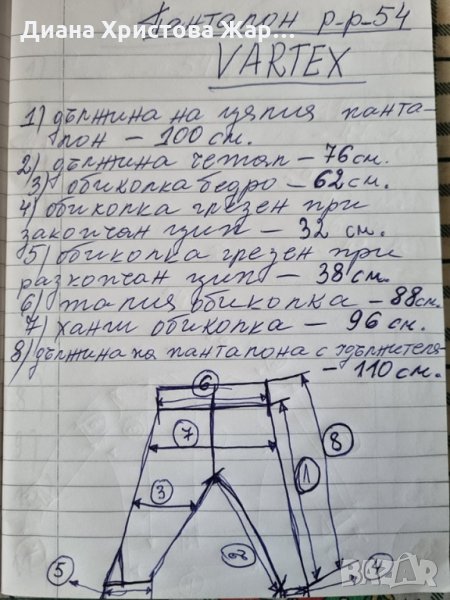 Диана Христова Жар...
Панталон р-р-54
VARTEX
1) дължина на целия панта-
лон - 100 см.
2) дължина чатал - 76 см.
3) обиколка бедро - 62 см.
4) обиколка грезен при
закопчан цип - 32 см.
5) обиколка грезен при
разкопчан цип - 38 см.
6) талия обиколка - 88 см.
7) ханш обиколка - 96 см.
8) дължина на панталона с удължителя
- 110 см.
6
7
3
8
1
2
5
4
bazar